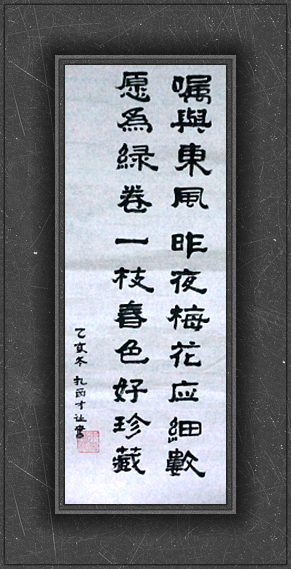 嘱與東風昨夜梅花应細數
愿為緑卷一枝春色好珍藏
乙亥冬 扎西才让書